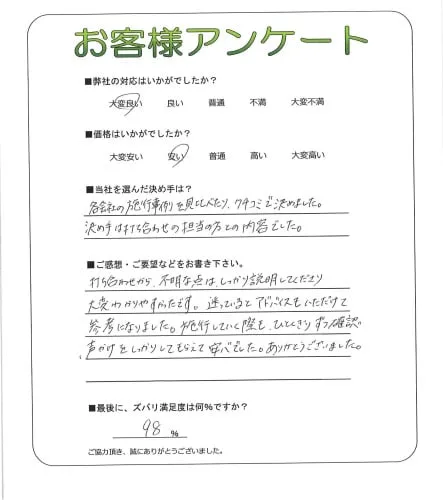 お客様アンケート
■弊社の対応はいかがでしたか?
大変良い 良い 普通 不満 大変不満
■価格はいかがでしたか?
大変安い 安い 普通 高い 大変高い
■当社を選んだ決め手は?
各会社の施行事例を見比べたり、クチコミで決めました。
決め手は打ち合わせの担当の方との内容でした。
■ご感想・ご要望などをお書き下さい。
打ち合わせから、不明な点はしっかり説明してくださり
大変わかりやすかったです。迷っているとアドバイスもいただけて
参考になりました。施行していく際も、ひとつひとつ確認、
声かけをしっかりしてもらえて安心でした。ありがとうございました。
■最後に、ズバリ満足度は何%ですか?
98 %
ご協力頂き、誠にありがとうございました。